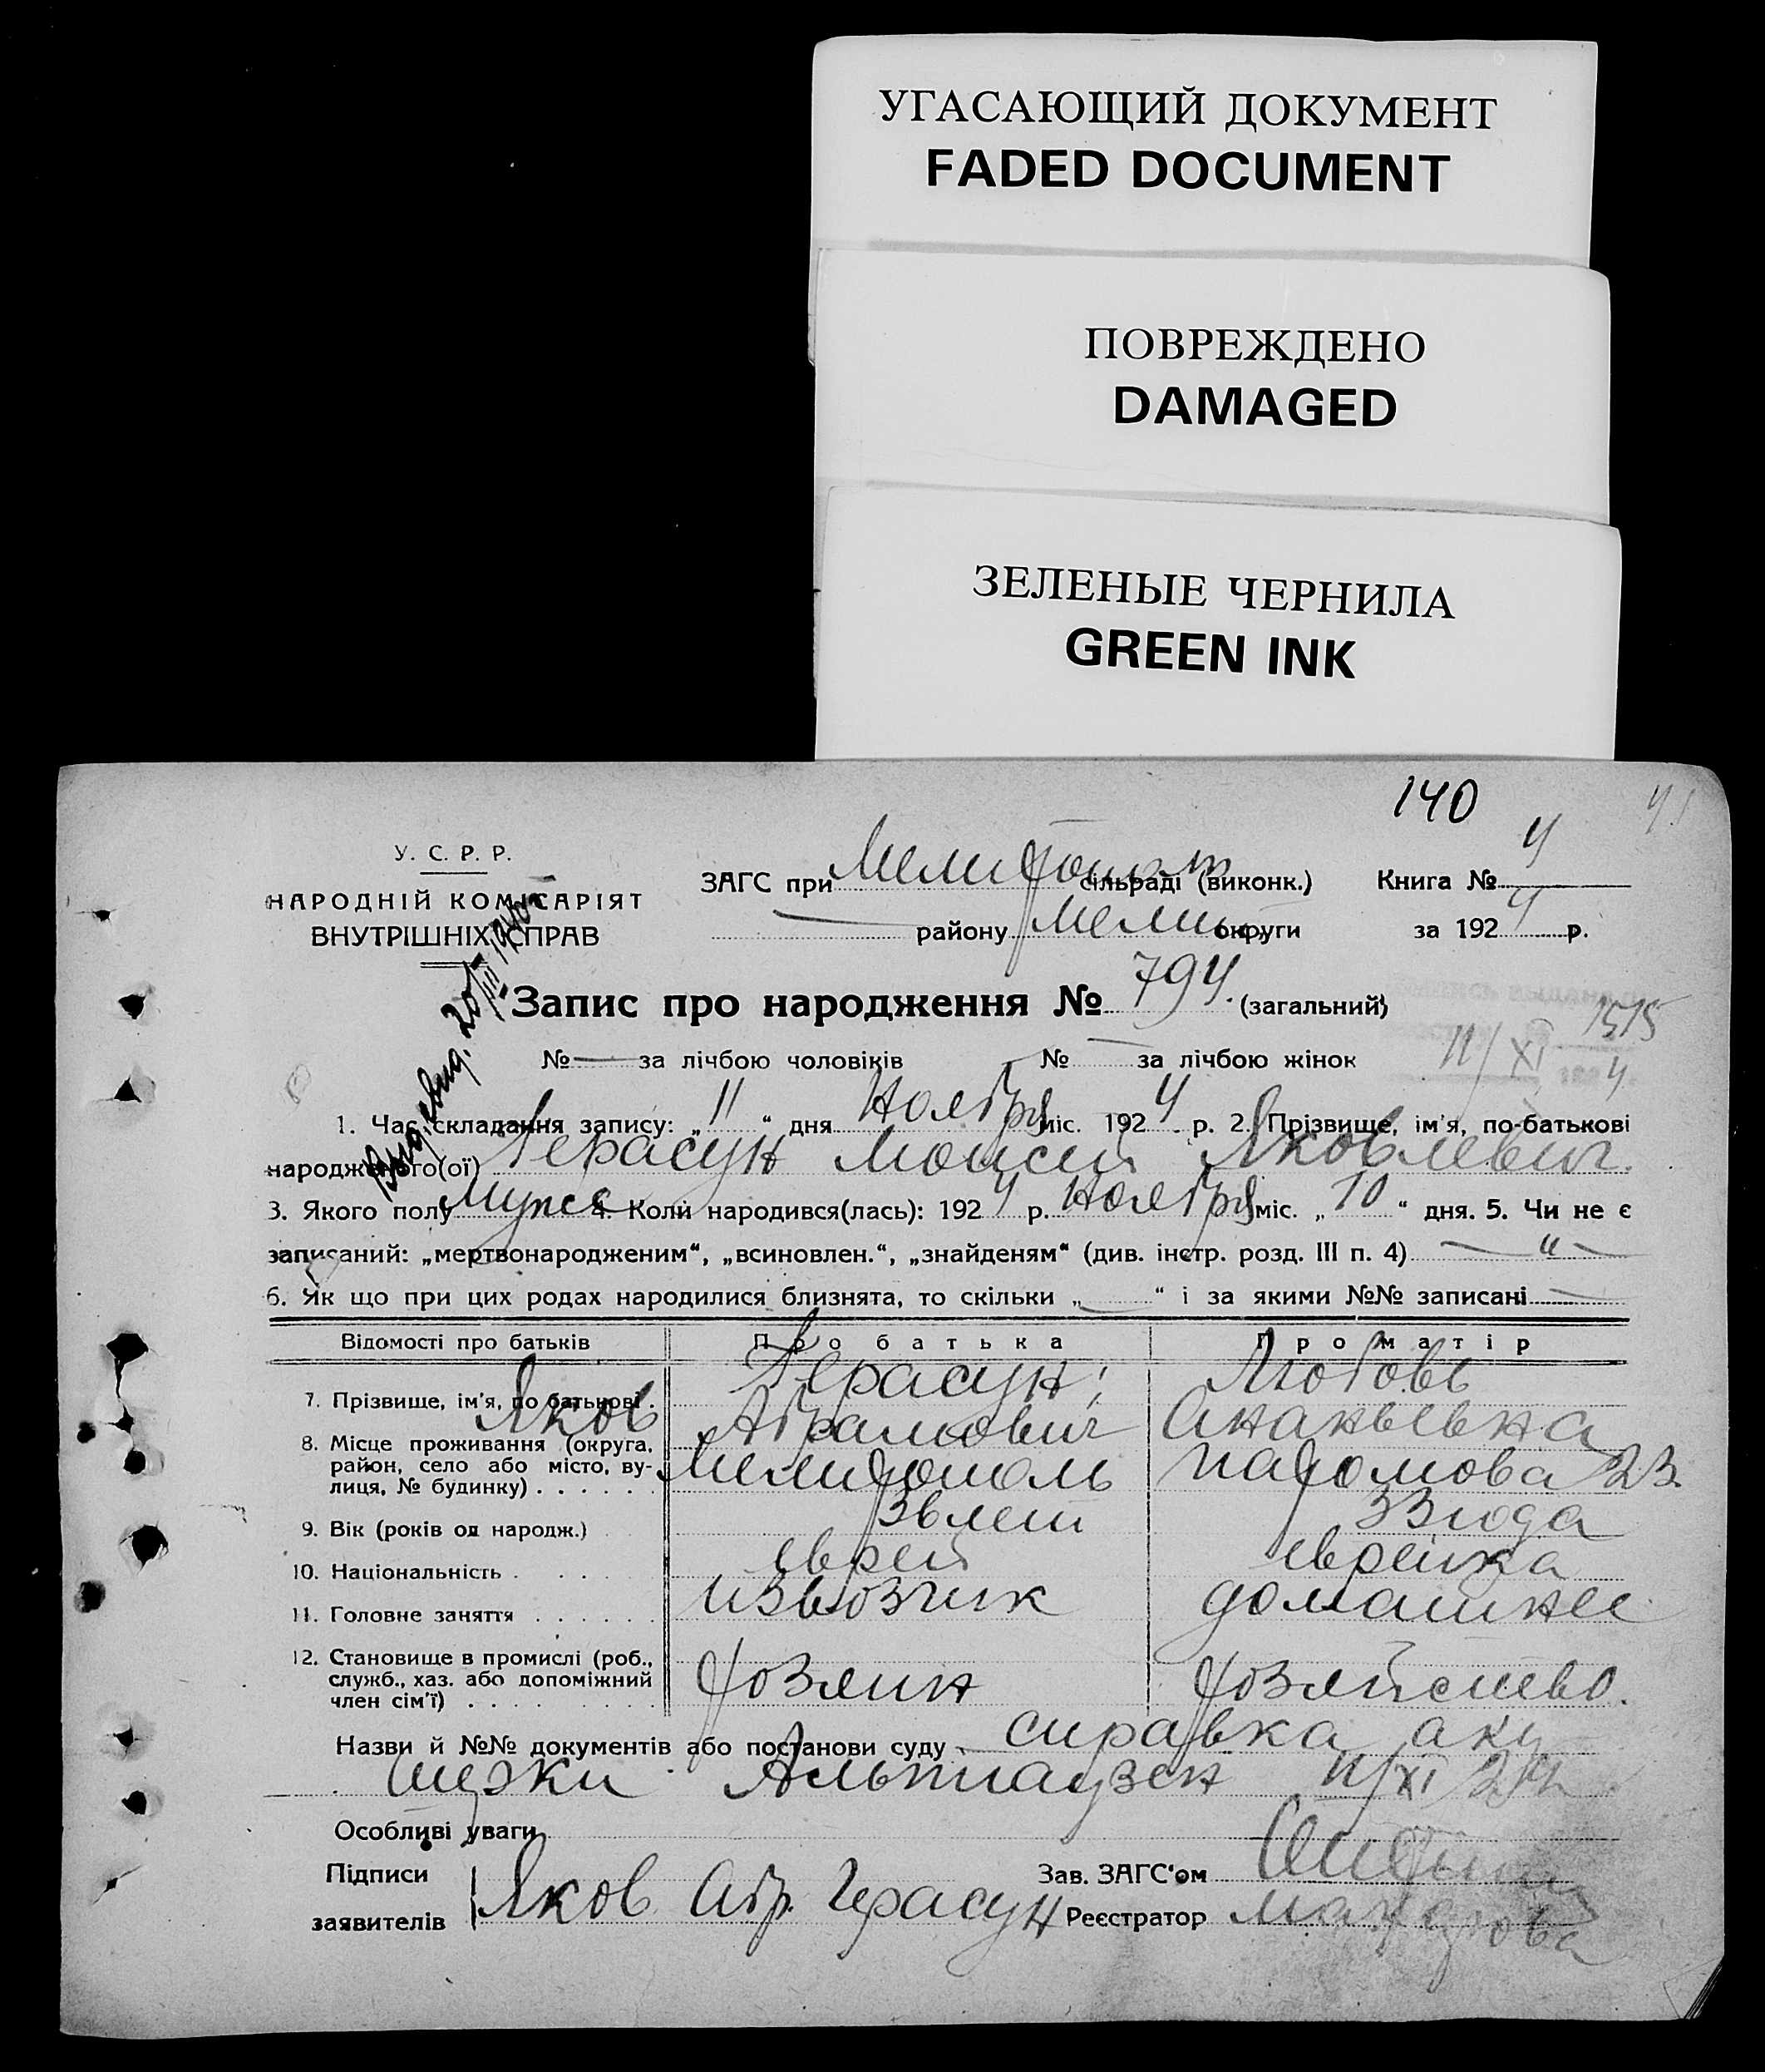 УГАСАЮЩИЙ ДОКУМЕНТ
FADED DOCUMENT
ПОВРЕЖДЕНО
DAMAGED
ЗЕЛЕНЫЕ ЧЕРНИЛА
GREEN INK
140
У. С. Р. Р.
НАРОДНІЙ КОМІСАРІЯТ
ВНУТРІШНІХ СПРАВ
ЗАГС при Мелитопол сільраді (виконк.) Книга № 4
району Мелит. округи за 1924 р.
Выд. свид. 20/III 1940
Запис про народження № 794. (загальний)
1515
№ — за лічбою чоловіків № — за лічбою жінок
11/XI 4
1. Час складання запису: „11“ дня Ноября міс. 1924 р. 2. Прізвище, ім'я, по-батькові
народженого(ої) Герасун Моисей Яковлевич.
3. Якого полу Мужс 4. Коли народився(лась): 1924 р. Ноября міс. „10“ дня. 5. Чи не є
записаний: „мертвонародженим“, „всиновлен.“, „знайденям“ (див. інстр. розд. III п. 4) — “ —
6. Як що при цих родах народилися близнята, то скільки „ — “ і за якими №№ записані —
Відомості про батьків Про батька Про матір
7. Прізвище, ім'я, по батькові . Герасун; Любовь
Яков Абрамович Ананьевна
8. Місце проживання (округа, район, село або місто, вулиця, № будинку) . . . . . . Мелитополь 23.
9. Вік (років од народж.) 38 лет 33 года
10. Національність . . . . еврей еврейка
11. Головне заняття . . . . . . извозчик домашнее
12. Становище в промислі (роб., служб., хаз. або допоміжний член сім'ї) . . . . . . хозяин хозяйство.
Назви й №№ документів або постанови суду справка аку
шерки Альтгаузен 11/XI 24
Особливі уваги
Підписи Зав. ЗАГС'ом
заявителів Яков Абр. Герасун Реєстратор